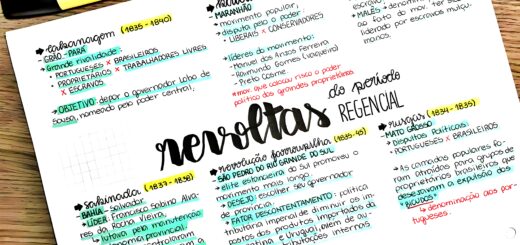 cabanagem (1835-1840)
- GRÃO-PARÁ
- Grande rivalidade:
• PORTUGUESES x BRASILEIROS
• PROPRIETÁRIOS x TRABALHADORES LIVRES
x ESCRAVOS
→ OBJETIVO: depor o governador Lobo de
Sousa, nomeado pelo poder central.
MARANHÃO
- movimento popular,
- disputa pelo poder
• LIBERAIS x CONSERVADORES
líderes do movimento:
- Manuel dos Anjos Ferreira
- Raimundo Gomes (vaqueiro)
- Preto Cosme
*mov. que colocou risco o poder
político das grandes proprietários
MALÊS →
ao foto de
liderado por escravos
manos.
revoltas do período
REGENCIAL
sabinada (1837-1838)
- BAHIA - Salvador
- LÍDER: Francisco Sabino Álva-
res da Rocha Vieira,
↳ lutava pela manutenção
revolução farroupilha (1835-45)
- SÃO PEDRO DO RIO GRANDE DO SUL
- elite estancieira do sul promoveu o
movimento mais longo.
- DESEJO: escolher seu governador
de província.
- FATOR DESCONTENTAMENTO: política
tributária imperial de diminuir os im-
postos dos produtos importados da
rusgas (1834-1835)
- MATO GROSSO
- Disputas Políticas:
PORTUGUESES x BRASILEIROS
→ As camadas populares fo-
ram atraídas para grupos de
proprietários brasileiros que
desejavam a expulsão dos
"BICUDOS"
↳ denominação aos por-
tugueses.